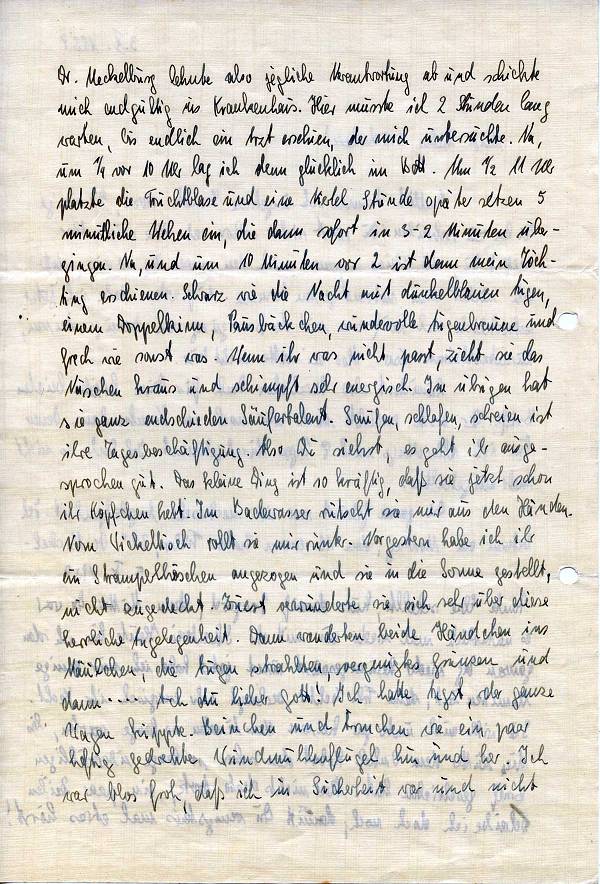 Dr. Meckelburg lehnte also jegliche Verantwortung ab und schickte
mich endgültig ins Krankenhaus. Hier musste ich 2 Stunden lang
warten, bis endlich ein Arzt erschien, der mich untersuchte. Na,
um ¼ vor 10 Uhr lag ich denn glücklich im Bett. Um ½ 11 Uhr
platzte die Fruchtblase und eine Viertel Stunde später setzen 5
minütliche Wehen ein, die dann sofort in 3-2 Minuten über-
gingen. Na, und um 10 Minuten vor 2 ist dann mein Töch-
ting erschienen. Schwarz wie die Nacht mit dunkelblauen Augen,
einem Doppelkinn, Pausbäckchen, wundervolle Augenbraune und
frech wie sonst was. Wenn ihr was nicht passt, zieht sie das
Näschen kraus und schimpft sehr energisch. Im übrigen hat
sie ganz endschieden Säufertalent. Saufen, schlafen, schreien ist
ihre Tagesbeschäftigung. Also Du siehst, es geht ihr ausge-
sprochen gut. Das kleine Ding ist so kräftig, daß sie jetzt schon
ihr Köpfchen hebt. Im Badewasser rutscht sie mir aus den Händen.
Vom Wickeltisch rollt sie mir runter. Vorgestern habe ich ihr
ein Strampelhöschen angezogen und sie in die Sonne gestellt,
nicht zugedeckt. Zuerst verwunderte sie sich sehr über diese
herrliche Angelegenheit. Dann wanderten beide Händchen ins
Mäulchen, die Augen strahlten, vergnügtes Grinsen und
dann ..... Ach du lieber Gott! Ich hatte Angst, der ganze
Wagen hüppte. Beinchen und Ärmchen wie ein paar
heftig gedrehte Windmühlflügel hin und her. Ich
war blos froh, daß ich in Sicherheit war und nicht